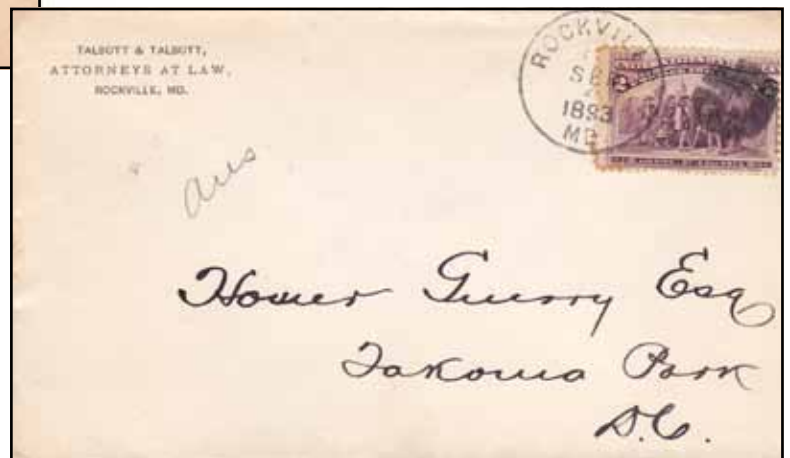 TALBOTT & TALBOTT,
ATTORNEYS AT LAW,
ROCKVILLE, MD.
ROCKVILL
SE
1893
MD
2
ans
Homer Guerry Esq
Takoma Park
D.C.